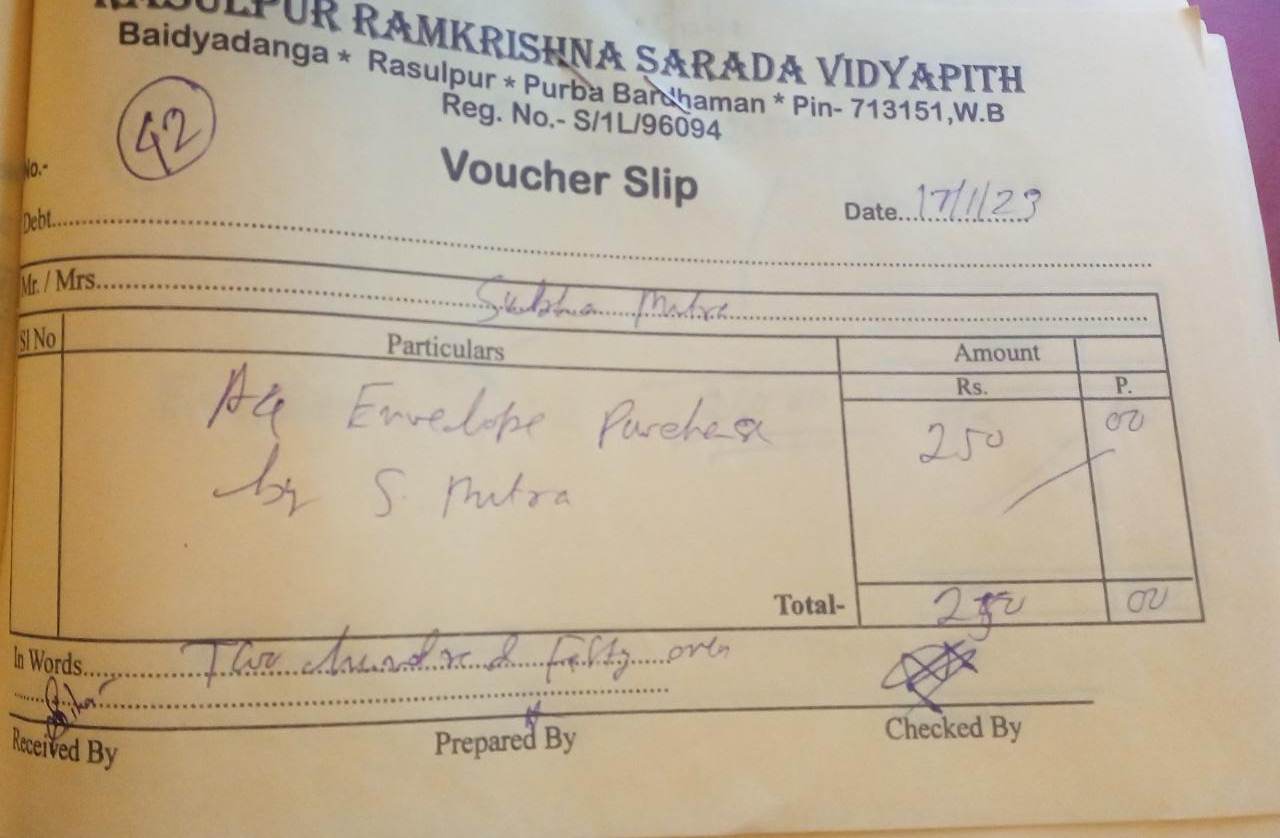 RASULPUR RAMKRISHNA SARADA VIDYAPITH
Baidyadanga * Rasulpur * Purba Bardhaman * Pin- 713151,W.B
Reg. No.- S/1L/96094
42
No.-
Voucher Slip
Date...17/1/23
Debt
Mr. / Mrs. Subha Mitra
Sl No Particulars Amount
Rs. P.
A4 Envelope Purchase 250 00
by S. Mitra
Total- 250 00
In Words Two hundred Fifty only
Received By Prepared By Checked By